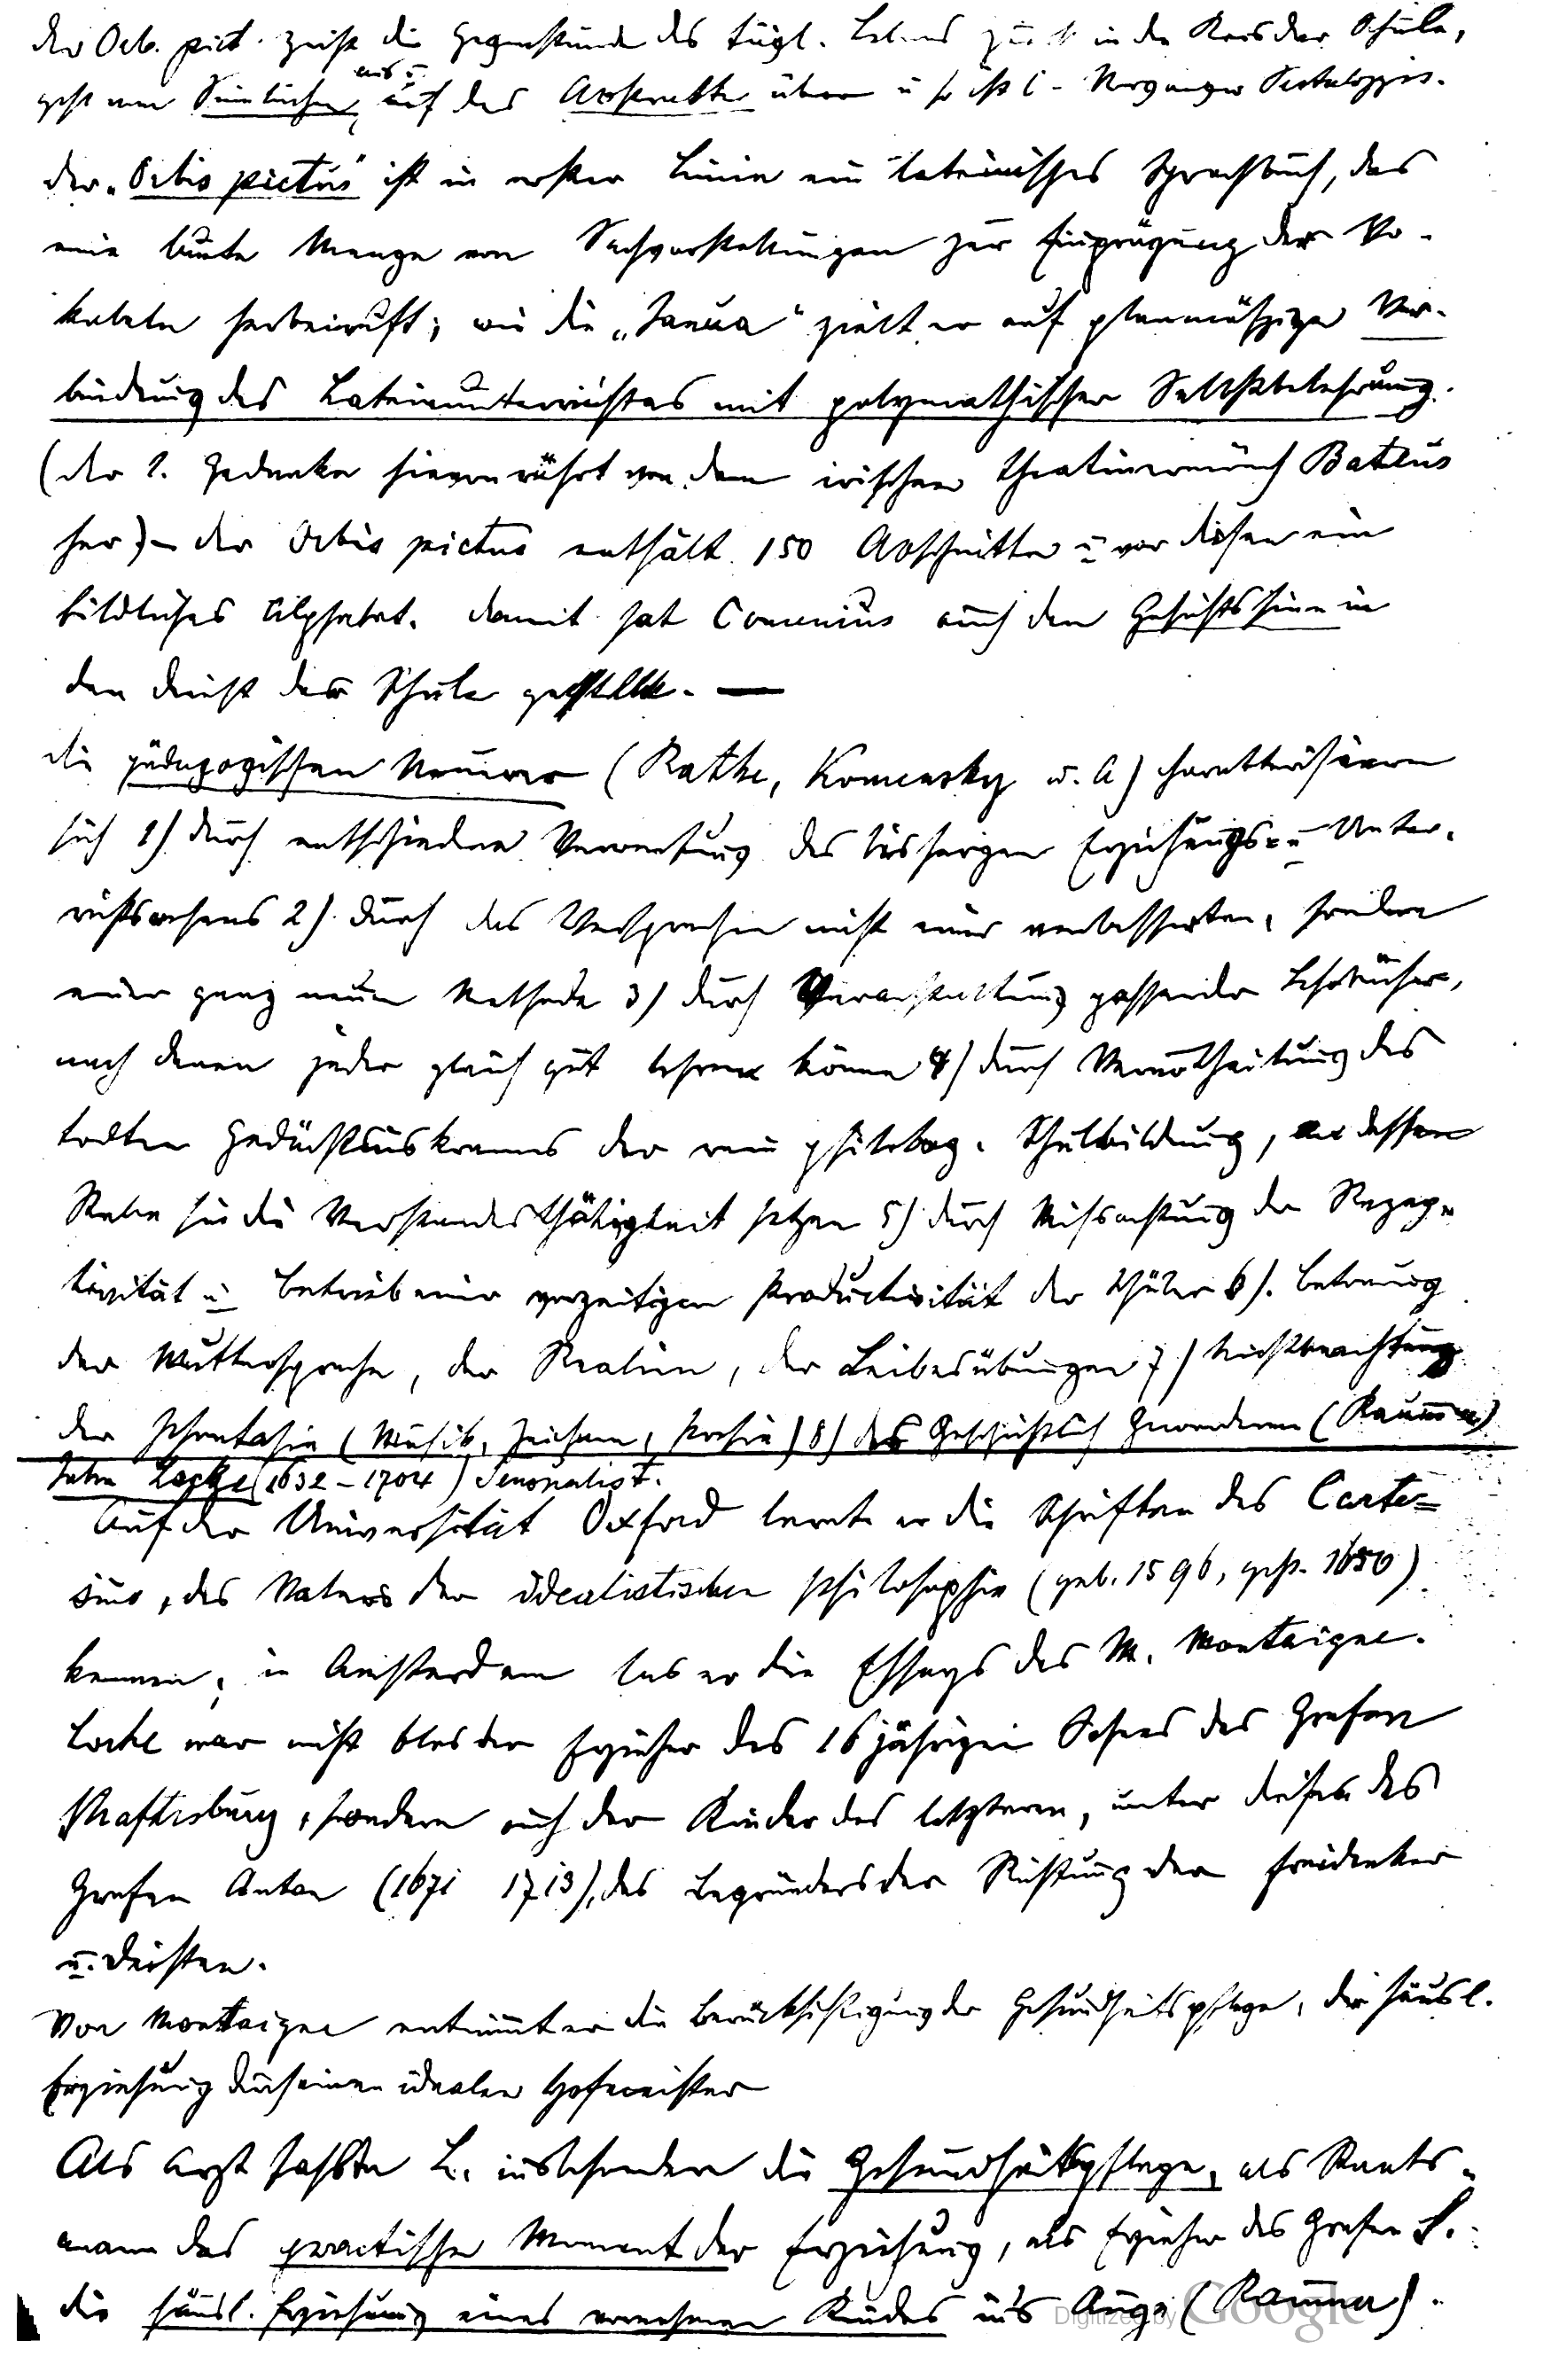 der Orb. pict. zieht die Gegenstände des tägl. Lebens zuerst in den Kreis der Schule,
geht vom Sinnlichen aus u. auf das Abstrakte über u. so ist C. Vorgänger Pestalozzis.
der „Orbis pictus" ist in erster Linie ein lateinisches Sprachbuch, das
eine bunte Menge von Sachvorstellungen zur Einprägung der Vo-
kabeln herbeiruft; wie die „Janua" zielt er auf planmäßige Ver-
bindung des Lateinunterrichtes mit polymathischer Selbstbelehrung.
(der 1. Gedanke hievon rührt von dem irischen Theatinermönch Bateus
her) – der Orbis pictus enthält 150 Abschnitte u. vor diesen ein
bildliches Alphabet. damit hat Comenius auch den Gesichtssinn in
den Dienst der Schule gestellt. —
die pädagogischen Neuerer (Rathe, Komensky u. A) charakterisieren
sich 1) durch entschiedene Verwerfung des bisherigen Erziehungs- u. Unter-
richtswesens 2) durch das Versprechen nicht einer verbesserten, sondern
einer ganz neuen Methode 3) durch Veranstaltung passender Lehrbücher,
nach denen jeder gleich gut lehren könne 4) durch Verurtheilung des
todten Gedächtniskrames der rein philolog. Schulbildung, an dessen
Stelle sie die Verstandesthätigkeit setzen 5) durch Missachtung der Rezep-
tivität u. Betrieb einer vorzeitigen Productivität der Schüler 6). Betonung
der Muttersprache, der Realien, der Leibesübungen 7) Nichtbeachtung
der Phantasie (Musik, Zeichnen, Poesie) 8) des Geschichtlich Gewordenen (Raumer)
John Locke (1632 – 1704) Sensualist.
Auf der Universität Oxford lernte er die Schriften des Carte-
sius, des Vaters der idealistischen Philosophie (geb. 1596, gest. 1650)
kennen; in Amsterdam las er die Essays des M. Montaigne.
Locke war nicht blos der Erzieher des 16jährigen Sohnes des Grafen
Shaftesbury, sondern auch der Kinder des letzteren, unter diesen des
Grafen Anton (1671 1713), des Begründers der Richtung der Freidenker
u. Deisten.
Von Montaigne entnimmt er die Berücksichtigung der Gesundheitspflege, die häusl.
Erziehung durch einen idealen Hofmeister
Als Arzt faßte L. insbesondere die Gesundheitspflege, als Staats-
mann das practische Moment der Erziehung, als Erzieher des Grafen S.
die häusl. Erziehung eines vornehmen Kindes in's Auge (Raumer).
Digitized by Google